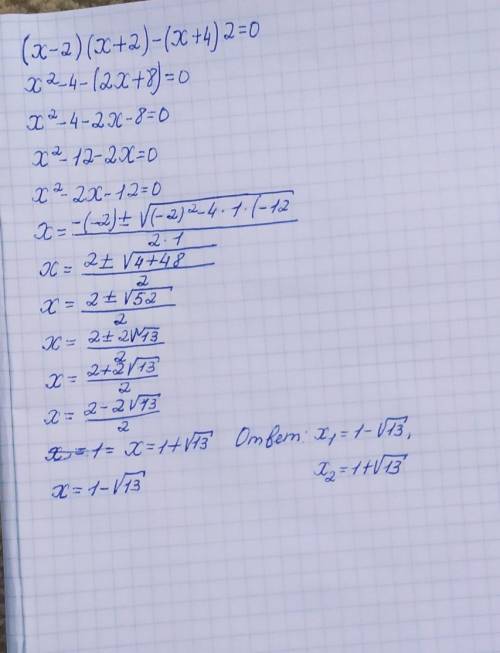 (x-2)(x+2)-(x+4)2=0
x²-4-(2x+8)=0
x²-4-2x-8=0
x²-12-2x=0
x²-2x-12=0
x=\frac{-(-2)±√((-2)²-4·1·(-12}{2·1}
x=\frac{2±√(4+48)}{2}
x=\frac{2±√52}{2}
x=\frac{2±2√13}{2}
x=\frac{2+2√13}{2}
x=\frac{2-2√13}{2}
x=1= x=1+√13 Ответ: x₁=1-√13,
x=1-√13 x₂=1+√13